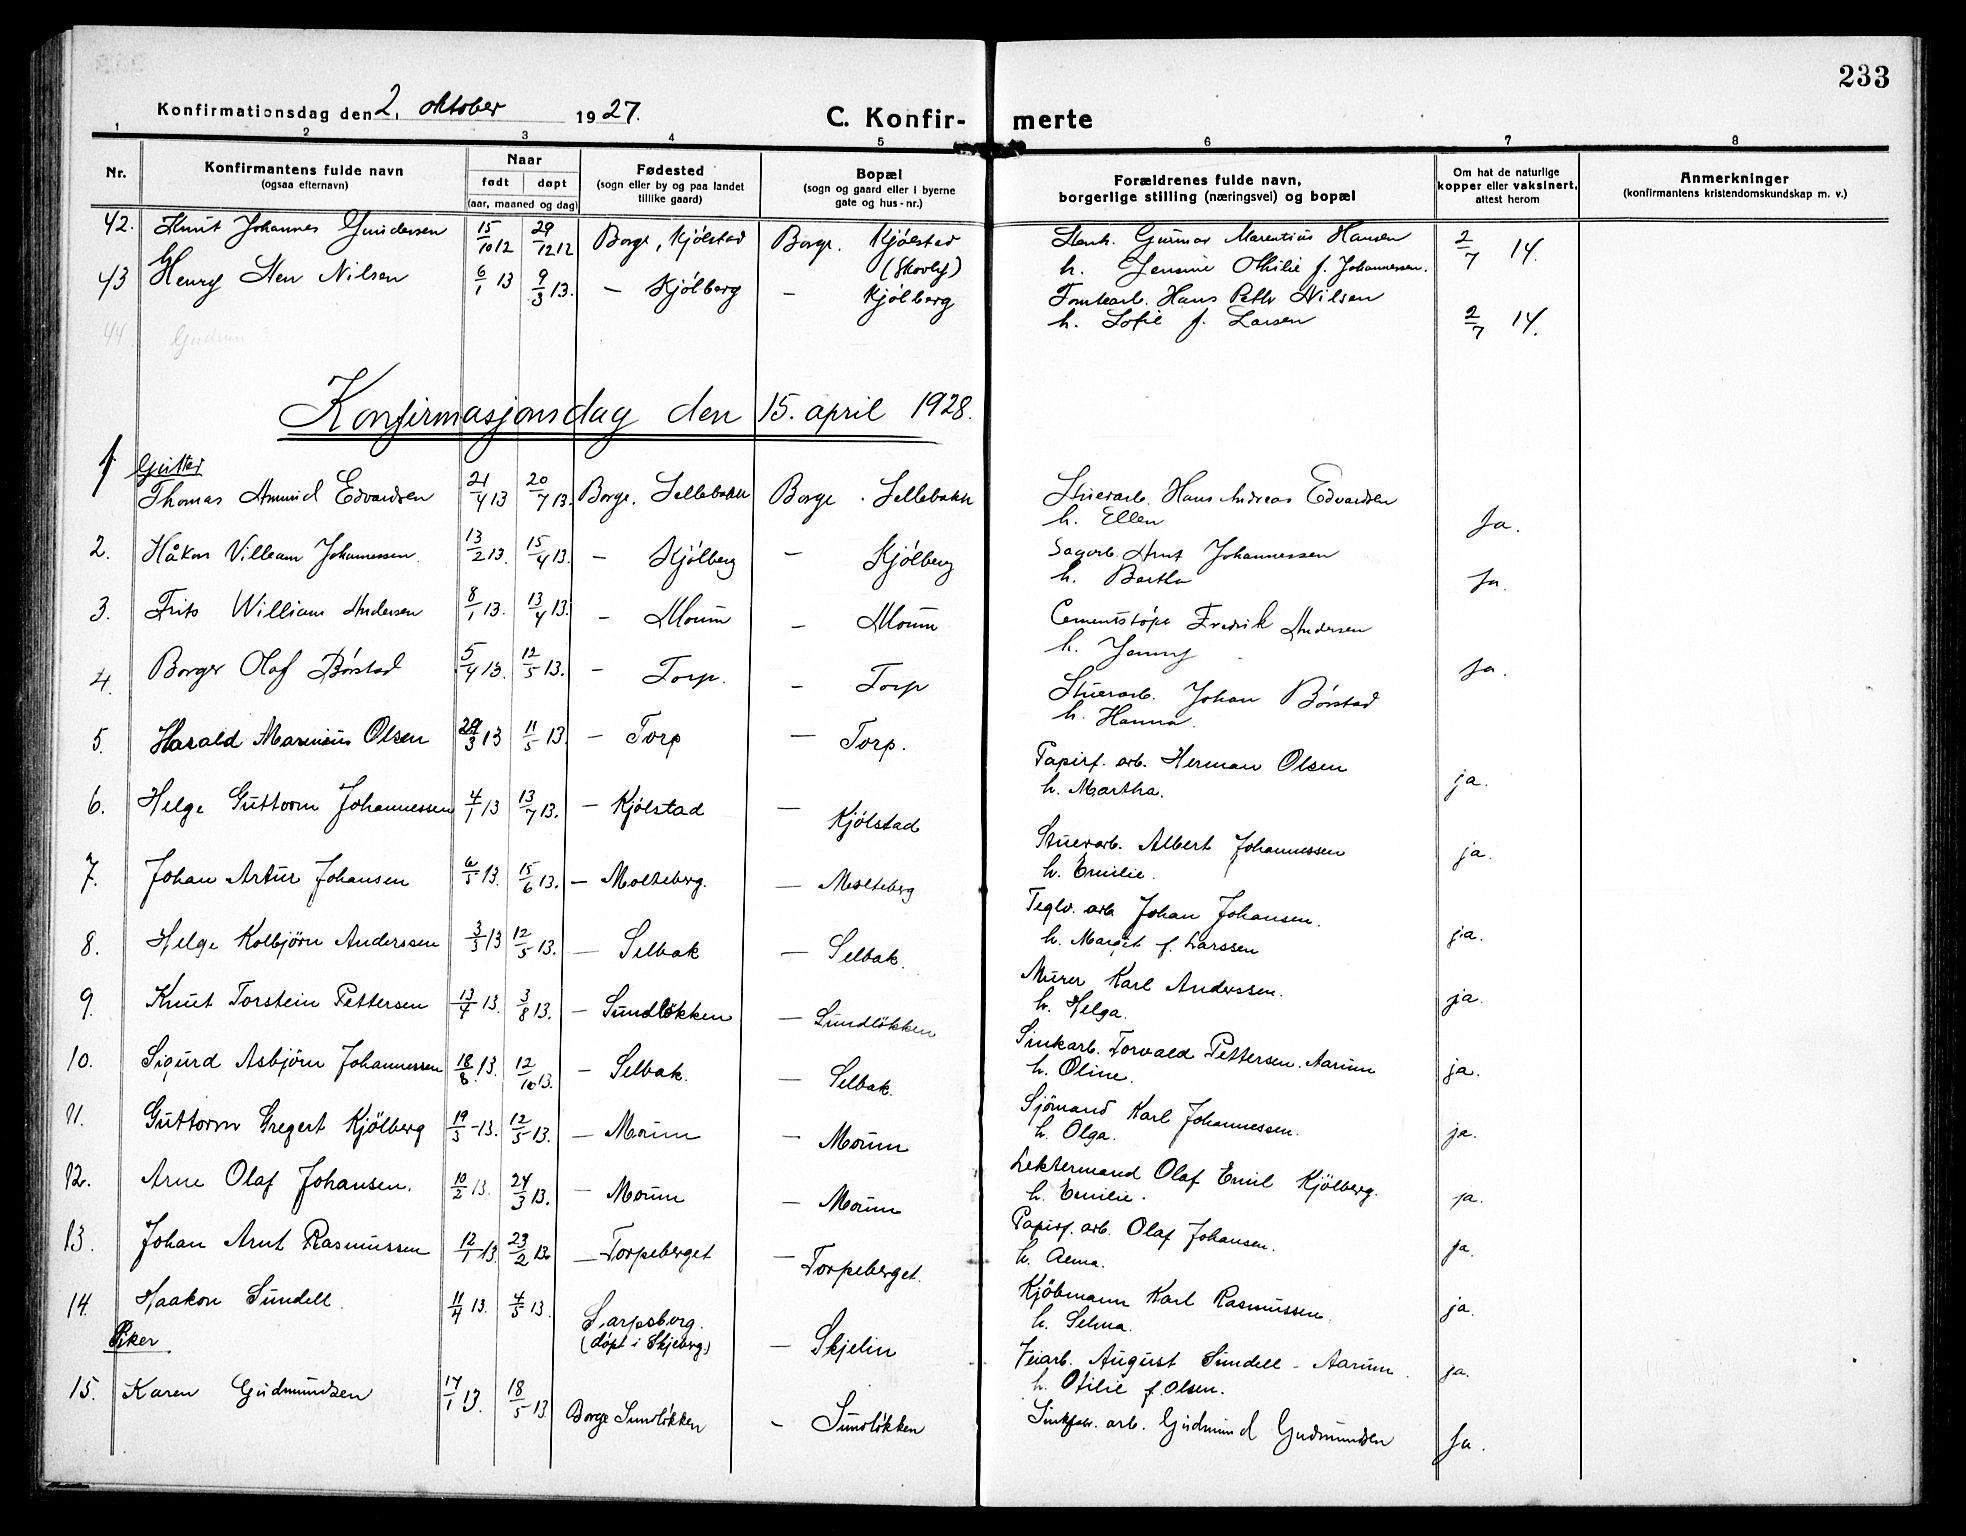 233
Konfirmationsdag den 2. oktober 1927.
C. Konfirmerte
1 2 3 4 5 6 7 8
Nr.
Konfirmantens fulde navn
(ogsaa efternavn)
Naar
født døpt
(aar, maaned og dag)
Fødested
(sogn eller by og paa landet
tillike gaard)
Bopæl
(sogn og gaard eller i byerne
gate og hus-nr.)
Forældrenes fulde navn,
borgerlige stilling (næringsvei) og bopæl
Om hat de naturlige
kopper eller vaksinert,
attest herom
Anmerkninger
(konfirmantens kristendomskundskap m. v.)
42. Knut Johannes Gundersen 15/10 12 29/12 12 Borge, Kjölstad Borge. Kjölstad Gunnar Marentius Hansen 2/7 14.
(Skovly) h. Jensine Othilie f. Johannessen.
43 Henry Sten Nilsen 6/1 13 9/3 13. — Kjölberg — Kjölberg Tomtearb. Hans Petter Nilsen
h. Sofie f. Larsen 2/7 14.
44 Gudrun
Konfirmasjonsdag den 15. april 1928.
Gutter
1 Thomas Amund Edvardsen 21/4 13 20/7 13. Borge, Sellebakk Borge. Sellebakk Stuerarb. Hans Andreas Edvardsen
h. Ellen Ja.
2. Håkon Villeam Johannessen. 13/2 13. 15/4 13. — Kjölberg — Kjölberg Sagarb. Arnt Johannessen
h. Bertha Ja.
3. Frits William Andersen 8/1 13. 13/4 13. — Moum — Moum Cementstöper Fredrik Andersen
h. Jenny Ja.
4. Borger Olaf Börstad 5/4 13. 12/5 13. — Torp. — Torp Stuerarb. Johan Börstad
h. Hanna.
5. Harald Marenius Olsen 29/3 13 11/5 13. — Torp — Torp. Papirf. arb. Herman Olsen
h. Martha. ja.
6. Helge Guttorm Johannessen 4/1 13 13/7 13. — Kjölstad — Kjölstad Stuerarb. Albert Johannessen
h. Emilie. ja.
7. Johan Artur Johansen 6/5 13. 15/6 13. — Molteberg. — Molteberg Teglv. arb Johan Johansen.
h. Margit f. Larssen ja.
8. Helge Kolbjörn Anderssen 3/3 13 12/5 13. — Selbak — Selbak. Murer Karl Anderssen.
h. Helga. ja.
9. Knut Torstein Pettersen 13/4 13. 3/8 13. — Sundlökken — Sundlökken Sinkarb. Torvald Pettersen. Aarum
h. Oline. ja.
10. Sigurd Asbjörn Johannessen 18/8 13. 12/10 13. — Selbak. — Selbak. Sjömand Karl Johannessen.
h. Olga. ja.
11. Guttorm Gregert Kjölberg 19/3 - 13. 12/5 - 13. — Moum — Moum Lektermand Olaf Emil Kjölberg.
h. Emilie. ja.
12. Arne Olaf Johansen. 10/2 13. 24/3 13. — Moum — Moum Papirf. arb. Olaf Johansen.
h. ja.
13. Johan Arnt Rasmussen 12/1 13. 23/2 13. — Torpeberget — Torpeberget. Kjöbmann Karl Rasmussen.
h. Selma. ja.
14. Haakon Sundell. 11/4 13. 4/5 13. Sarpsborg.
(döpt i Skjeberg) — Skjelin Veiarb. August Sundell - Aarum.
h. Otilie f. Olsen. ja.
Piker
15. Karen Gudmundsen 17/1 13. 18/5 13 Borge Sundlökken — Sundlökken Sinkfabr. arb. Gudmund Gudmundsen Ja.